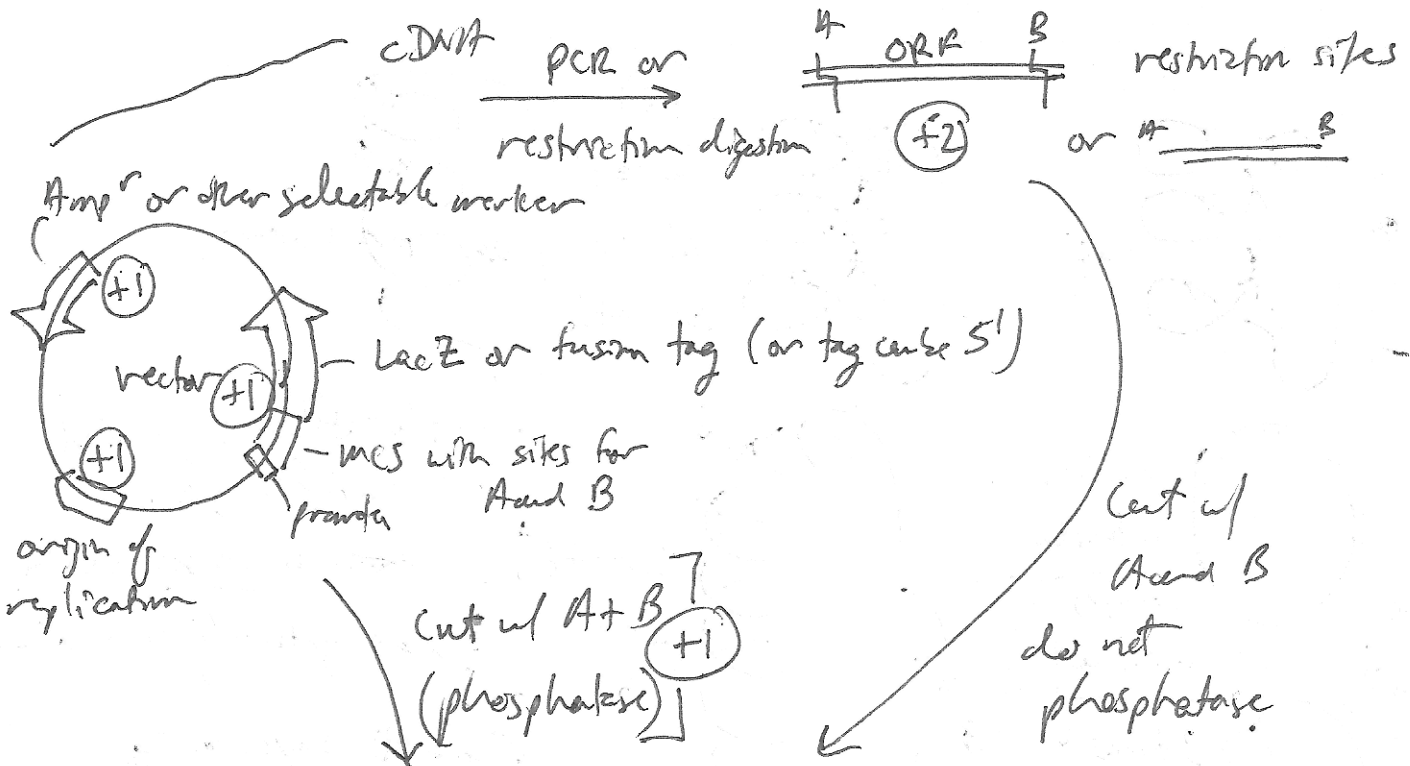 cDNA
PCR or
restriction digestion
A ORF B
+2
restriction sites
or A B
Ampʳ or other selectable marker
+1
vector +1
LacZ or fusion tag (or tag can be 5')
+1
MCS with sites for
A and B
promoter
origin of
replication
cut w/ A + B
+1
(phosphatase)
Cut w/
A and B
do not
phosphatase